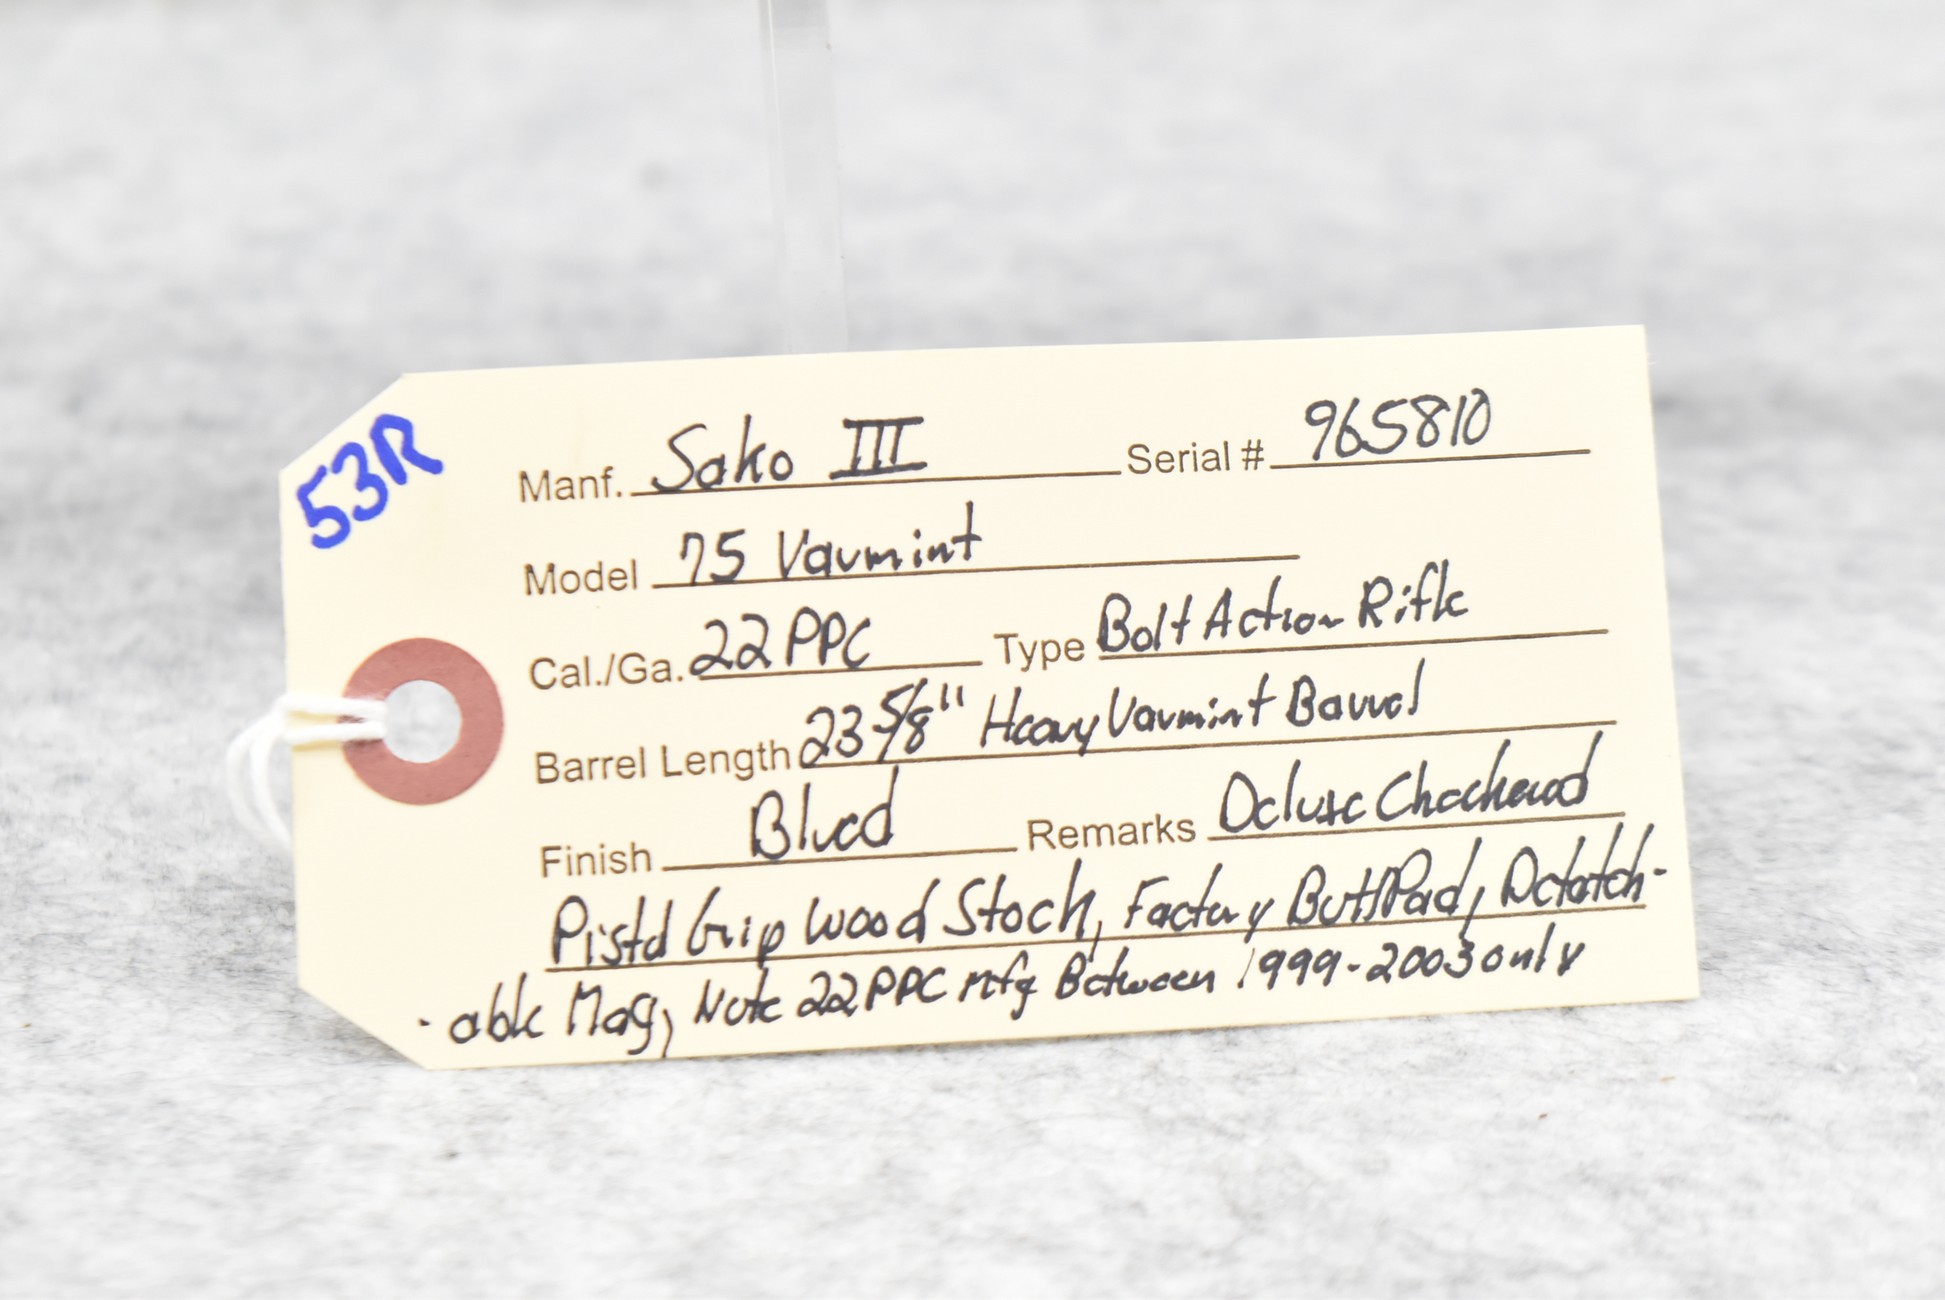 53R
Manf. Sako III Serial # 965810
Model 75 Varmint
Cal./Ga. 22 PPC Type Bolt Action Rifle
Barrel Length 23 5/8" Heavy Varmint Barrel
Finish Blued Remarks Deluxe Checkered
Pistol Grip Wood Stock, Factory Butt Pad, Detatch-
-able Mag, Note 22 PPC mfg Between 1999-2003 only